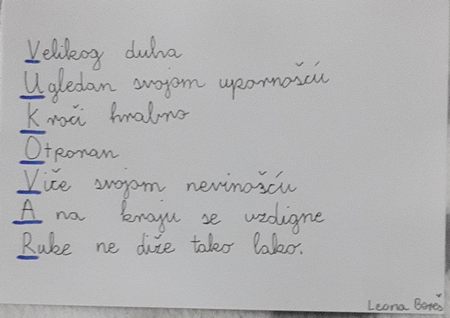 Velikog duha
Ugledan svojom upornošću
Kroči hrabro
Otporan
Viče svojom nevinošću
A na kraju se uzdigne
Ruke ne diže tako lako.
Leona Bareš